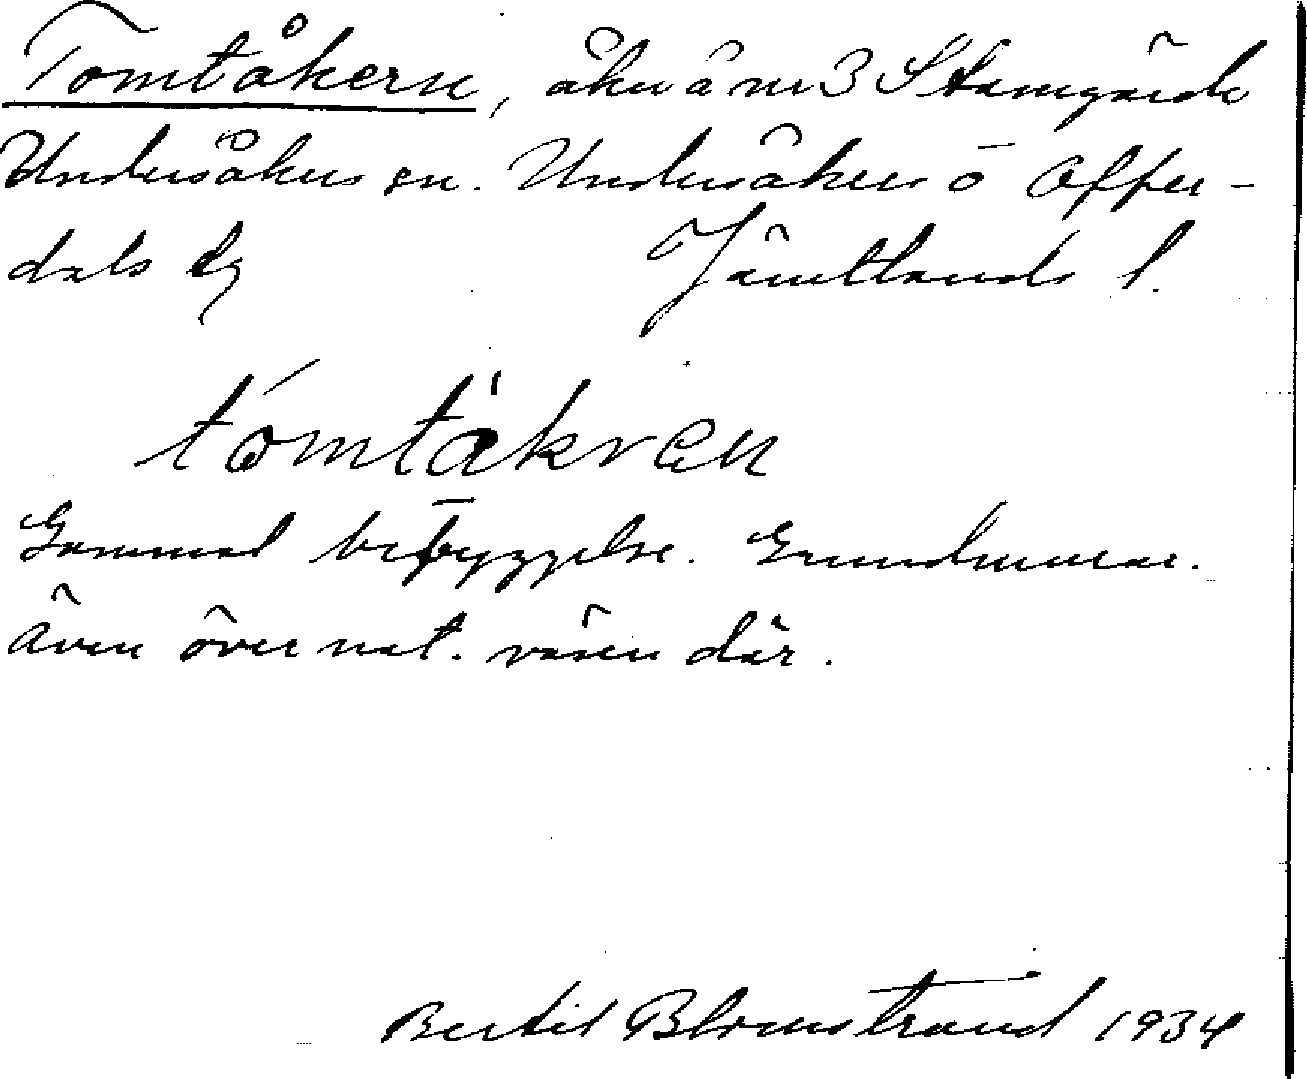 Tomtåkern, åker å nr 3 Stamgärde
Undersåkers sn. Undersåkers o Offer-
dals tg Jämtlands l.
tómtàkren
Gammal bebyggelse. Grundmurar.
även över nat. väsen där.
Bertil Blomstrand 1934